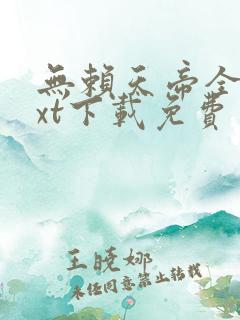 無賴天帝全
xt下載免費
王曉娜
未任同意禁止转载